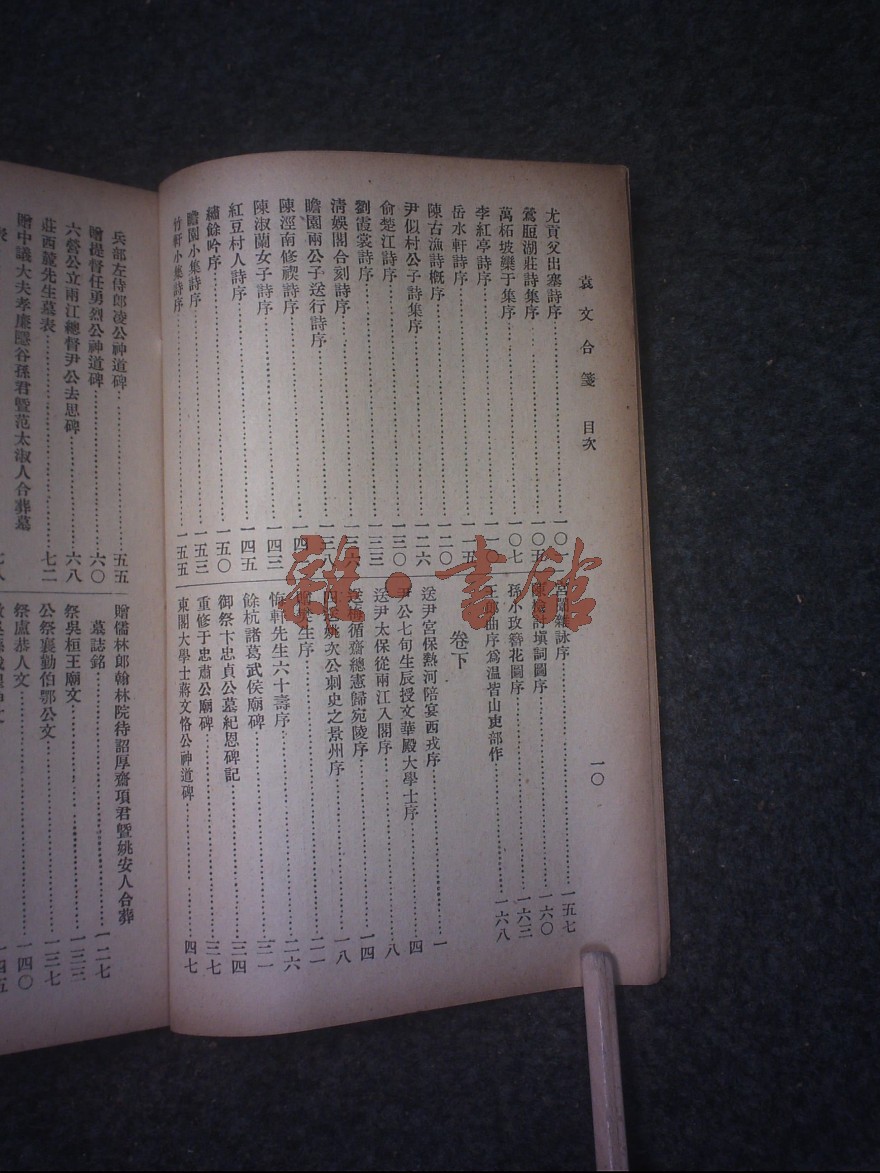 袁文合箋 目次
一〇
尤貢父出塞詩序 一〇一
鶯脰湖莊詩集序 一〇五
萬柘坡欒于集序 一〇七
李紅亭詩序 一一〇
岳水軒詩序 一一五
陳古漁詩概序 一二〇
尹似村公子詩集序 一二六
俞楚江詩序 一三〇
劉霞裳詩序 一三三
清娛閣合刻詩序 一三六
瞻園兩公子送行詩序 一三八
陳淫南修禊詩序
陳淑蘭女子詩序 一四三
紅豆村人詩序 一四五
繡餘吟序 一五〇
瞻園小集詩序 一五三
竹軒小集詩序 一五五
詠序 一五七
填詞圖序 一六〇
孫小玫簪花圖序 一六三
曲序為溫皆山吏部作 一六八
卷下
送尹宮保熱河陪宴西戎序 一
尹公七旬生辰授文華殿大學士序 四
送尹太保從兩江入閣序 八
循齋總憲歸宛陵序 一四
姚次公刺史之景州序 一八
生序 二一
悔軒先生六十壽序 二六
餘杭諸葛武侯廟碑 三一
御祭卞忠貞公墓紀恩碑記 三四
重修于忠肅公廟碑 三七
東閣大學士蔣文恪公神道碑 四七
兵部左侍郎凌公神道碑 五五
贈提督任勇烈公神道碑 六〇
六營公立兩江總督尹公去思碑 六八
莊西麓先生墓表 七二
贈中議大夫孝廉谷孫君暨范太淑人合葬墓
表 七八
贈儒林郎翰林院待詔厚齋項君暨姚安人合葬
墓誌銘 一二七
祭吳桓王廟文 一三三
公祭襄勤伯鄂公文 一三七
祭盧恭人文 一四〇
一四五
雜·書館